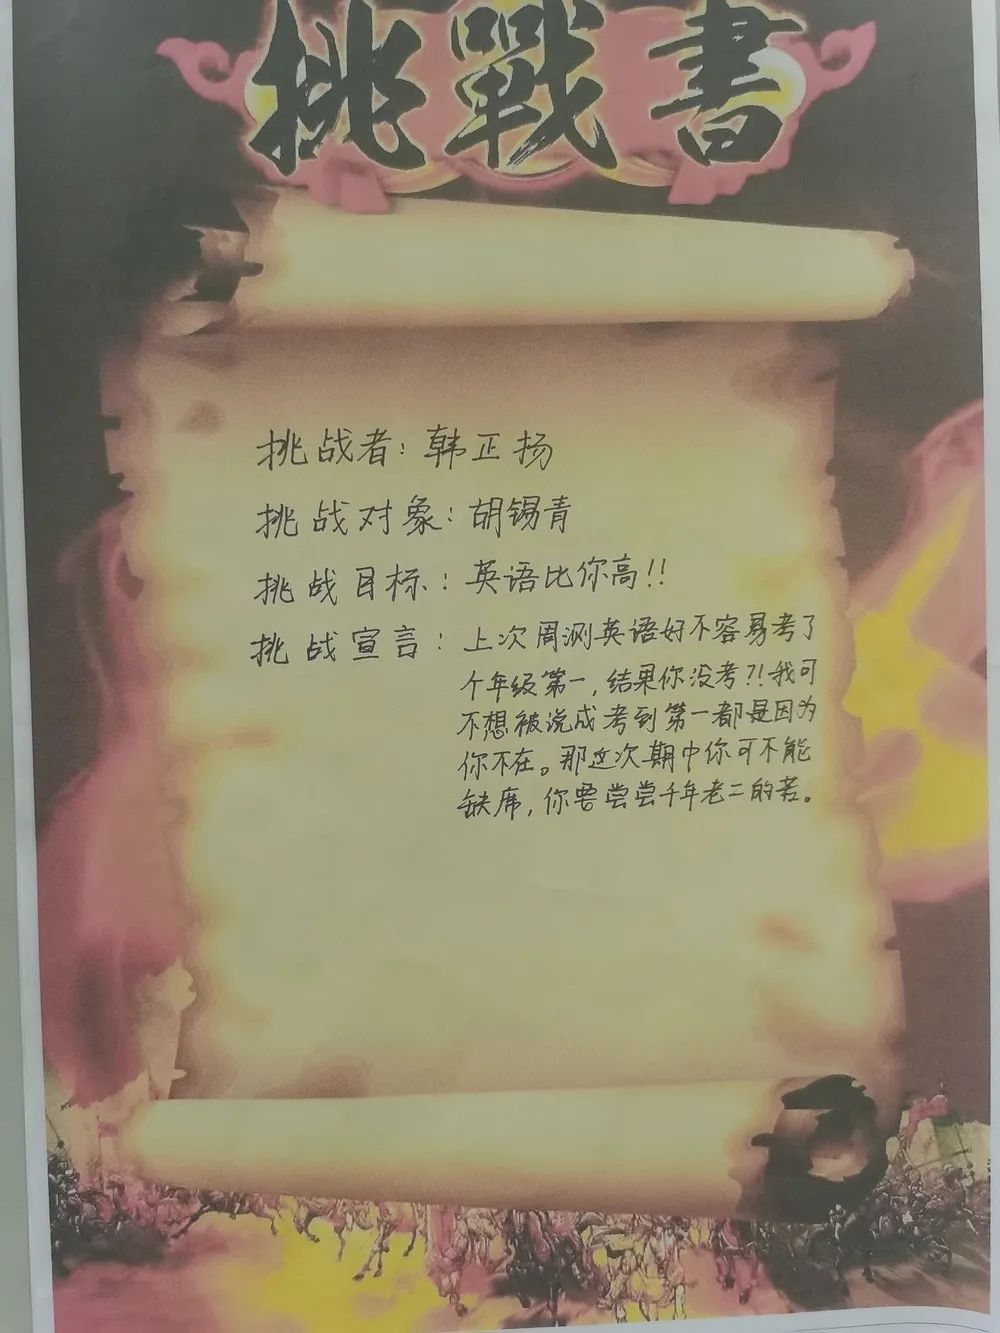 挑戰書
挑战者：韩正扬
挑战对象：胡锡青
挑战目标：英语比你高!!
挑战宣言：上次周测英语好不容易考了
个年级第一，结果你没考?!我可
不想被说成考到第一都是因为
你不在。那这次期中你可不能
缺席，你要尝尝千年老二的苦。